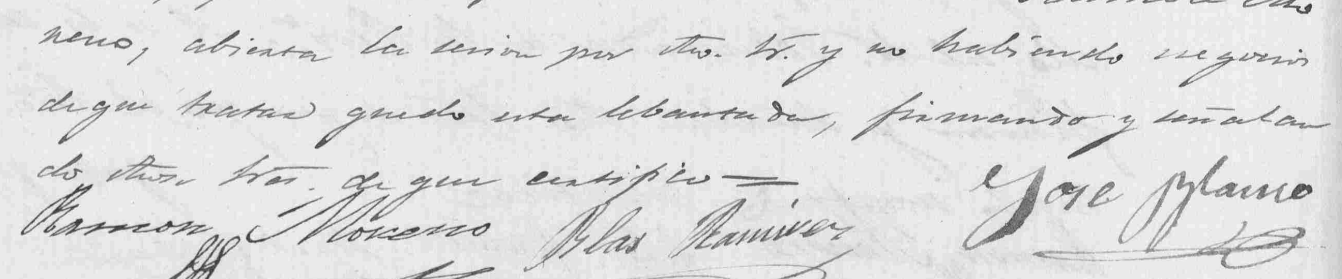 neno, abierta la sesion por dho. Sr. y no habiendo negocios
de que tratar quedo esta lebantada, firmando y señalan
do dhos. Sres. de que certifico=
Ramon Moreno Blas Ramirez Jose Blanco